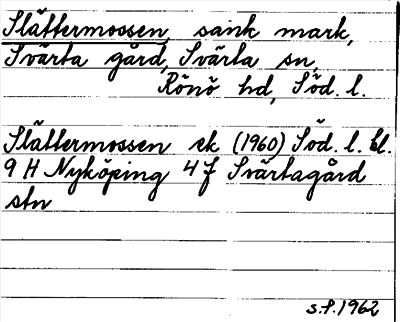 Slåttermossen, sank mark,
Svärta gård, Svärta sn,
Rönö hd, Söd. l.
Slåttermossen ek (1960) Söd. l. bl.
9 H Nyköping 4 f Svärtagård
stn
s.f. 1962